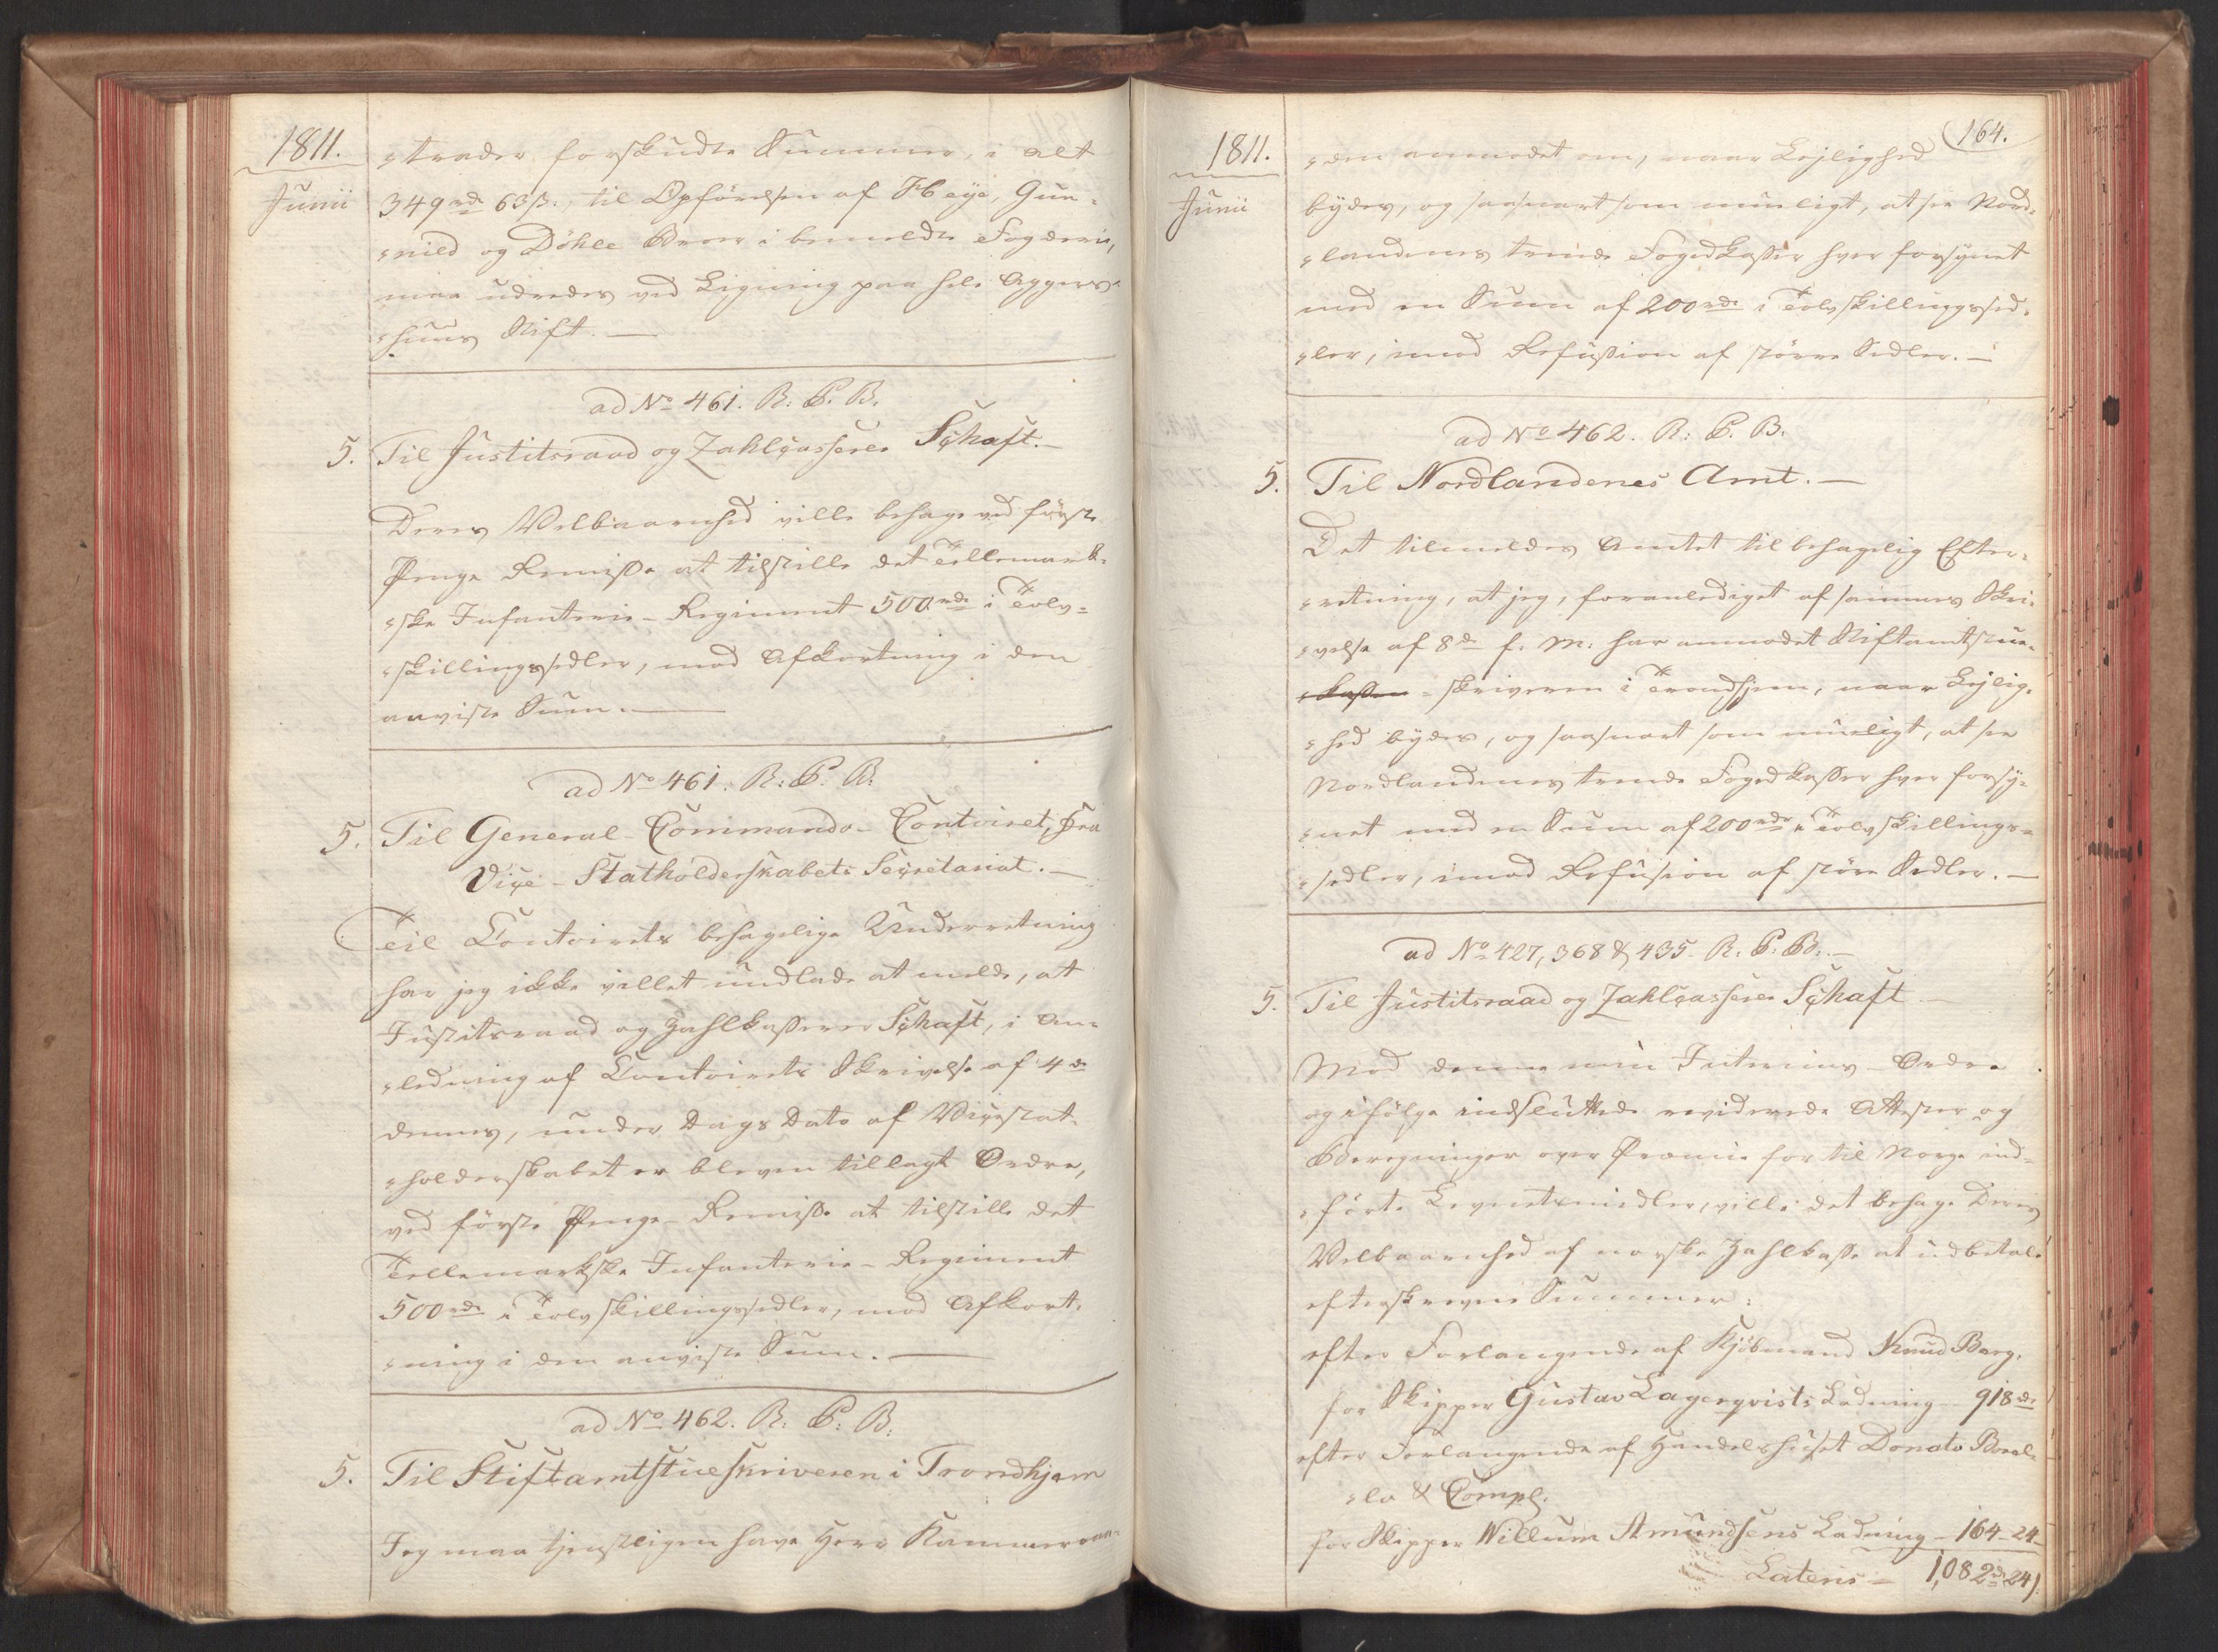 1811.
Junii
"trader forskudte Summer, i alt
349 rd 63 ß., til Opförelsen af Heye, Gun=
"nild og Döhle Broer i bemeldte Fogderie,
maa udredes ved Ligning paa hele Aggers=
"huus Stift. —
ad No 461. R: C. B.
5. Til Justitsraad og Zahlcasserer Schaft. —
Deres Velbaarenhed ville behage ved förste
Penge Remisse at tilstille det Tellemark=
"ske Infanterie-Regiment 500 rd i Tolv=
"skillingssedler, mod Afkortning i den
anviste Sum. —
ad No 461. R: C. B.
5. Til General-Commando-Contoiret, fra
Vice-Statholderskabets Secretariat. —
Til Contoirets behagelige Underretning
har jeg ikke villet undlade at melde, at
Justitsraad og Zahlkasserer Schaft, i An=
"ledning af Contoirets Skrivelse af 4de
dennes, under Dags Dato af Vicestat=
"holderskabet er bleven tillagt Ordre,
ved förste Penge-Remisse at tilstille det
Tellemarkske Infanterie-Regiment
500 rd i Tolvskillingssedler, mod Afkort=
"ning i den anviste Sum. —
ad No 462. R: C: B:
5. Til Stiftamtstueskriveren i Trondhjem
Jeg maa tjenstligen have Herr Kammerraa=
164.
1811.
Junii
"den anmodet om, naar Lejlighed
bydes, og saasnart som mueligt, at see Nord=
"landenes trende Fogedkasser hver forsynet
med en Sum af 200 rd i Tolvskillingssed=
"ler, imod Refusion af större Sedler. —
ad No 462. R: C. B.
5. Til Nordlandenes Amt. —
Det tilmeldes Amtet til behagelig Efter=
"retning, at jeg, foranlediget af sammes Skri=
"velse af 8de f. M: har anmodet Stiftamtstue=
"kassen "skriveren i Trondhjem, naar Lejlig=
"hed bydes, og saasnart som mueligt, at see
Nordlandenes trende Fogedkasser hver forsy=
"net med en Sum af 200 rd i Tolvskillings=
"sedler, imod Refusion af större Sedler. —
ad No 427, 368 & 435. R. C: B: —
5. Til Justitsraad og Zahlcasserer Schaft —
Mod denne min Interims-Ordre
og ifölge indsluttede reviderede Attester og
Beregninger over Præmie for til Norge ind=
"förte Levnetsmidler, ville det behage Deres
Velbaarenhed af norske Zahlkasse at udbetale
efterskrevne Summer:
efter Forlangende af Kjöbmand Knud Barg.
for Skipper Gustav Lagerqvists Ladning — 918 rd
efter Forlangende af Handelshuset Donato Borel=
"la & Compl.
for Skipper Willum Amundsens Ladning — 164 – 24 –
Lateris — 1,082 rd 24 ß.